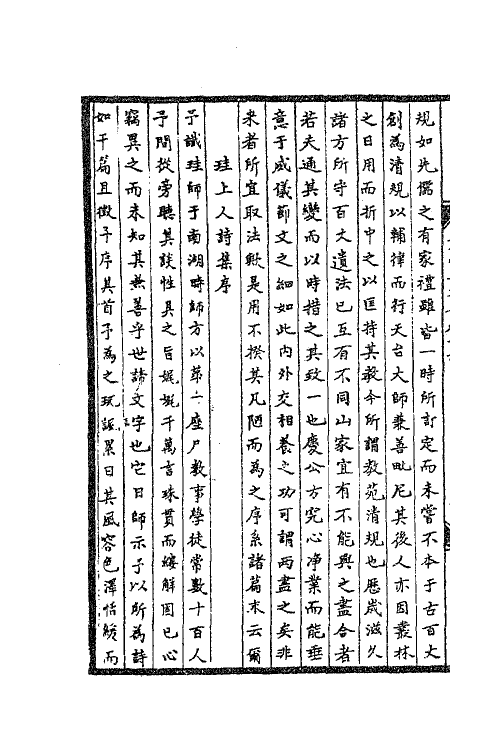 規如先儒之有家禮雖皆一時所訂定而未嘗不本于古百丈
創為清規以輔律而行天台大師兼善毗尼其後人亦因叢林
之日用而折中之以匡持其教今所謂教苑清規也歷歲滋久
諸方所守百丈遺法已互有不同山家宜有不能與之盡合者
若夫通其變而以時措之其致一也慶公方究心淨業而能垂
意于威儀節文之細如此內外交相養之功可謂兩盡之矣非
來者所宜取法歟是用不揆其凡陋而為之序系諸篇末云爾
珪上人詩集序
予識珪師于南湖時師方以第一座尸教事學徒常數十百人
予間從旁聽其談性具之旨娓娓千萬言珠貫而縷解固已心
竊異之而未知其兼善乎世諦文字也它日師示予以所為詩
如干篇且徵予序其首予為之玩誦累日其風容色澤恬緩而